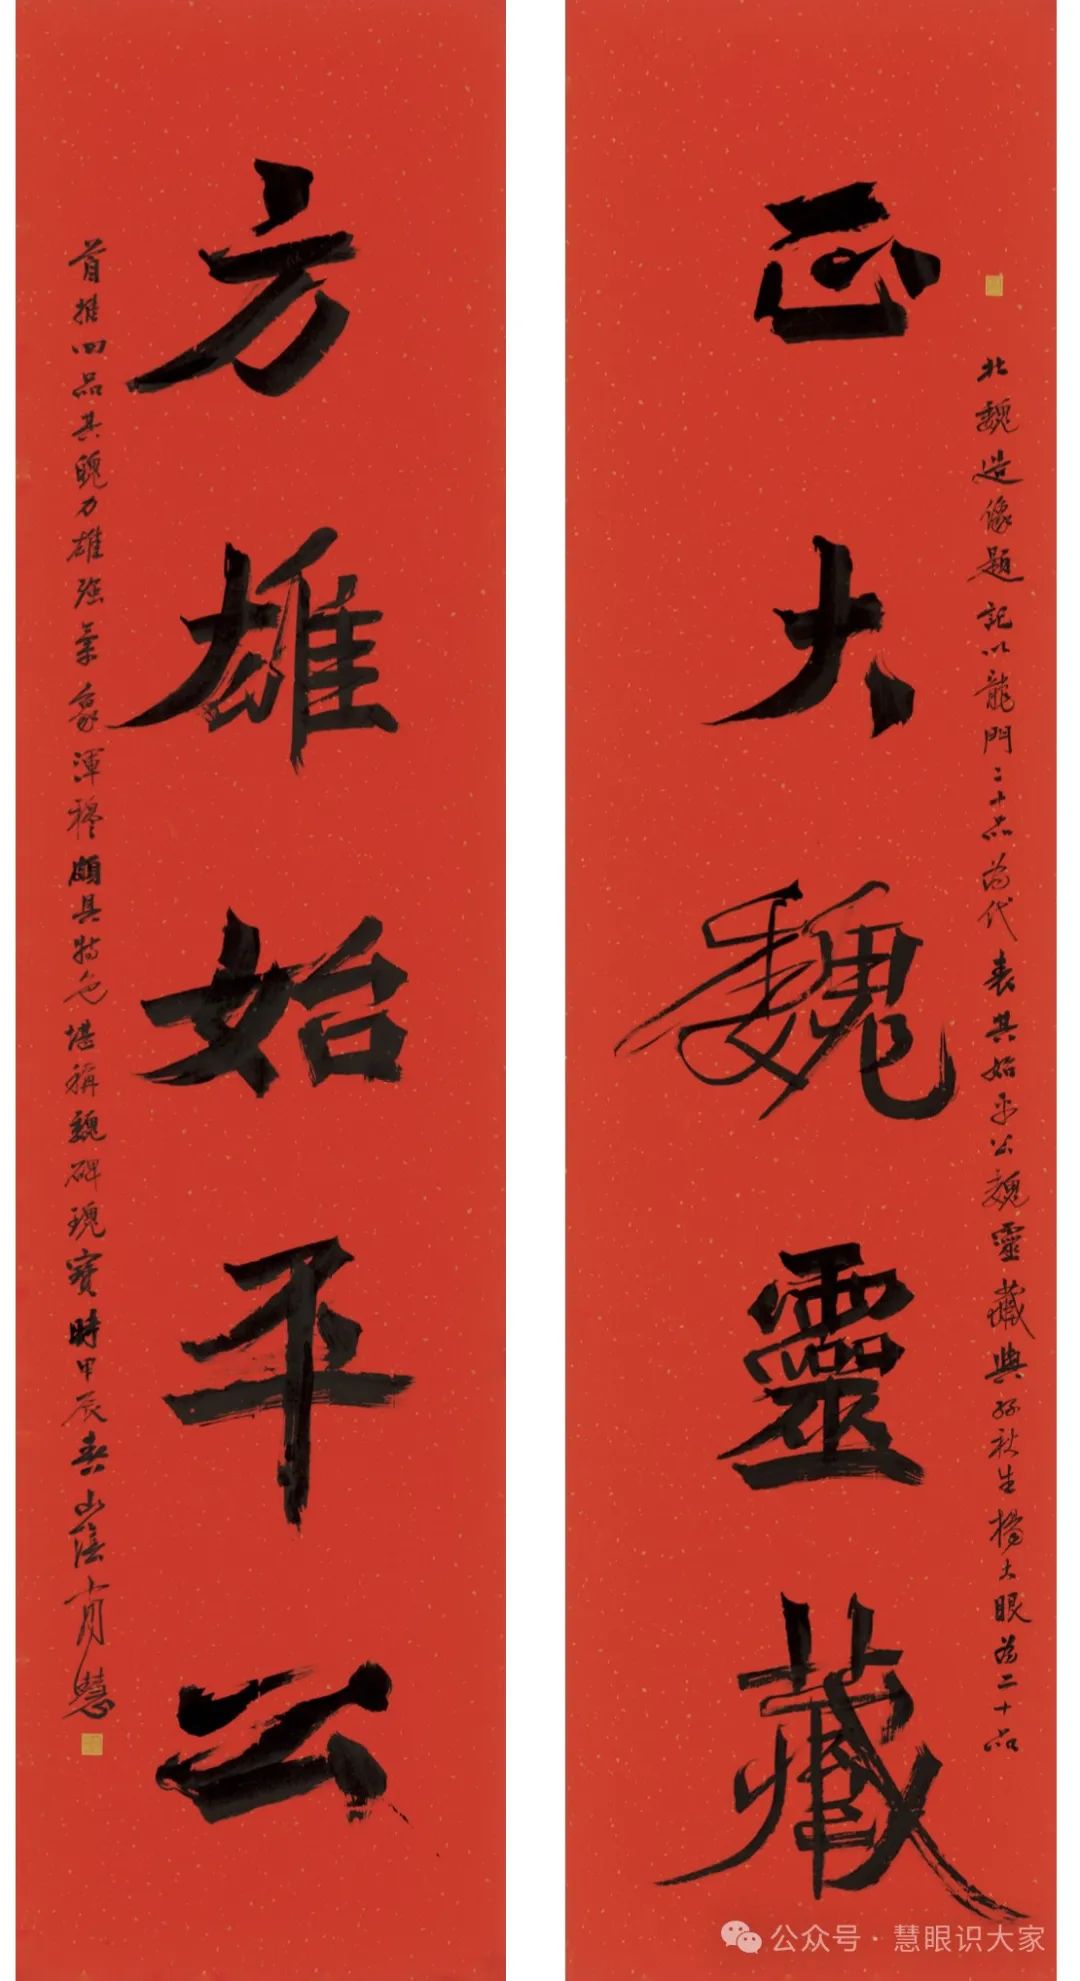 正大魏靈藏
北魏造像題記以龍門二十品為代表其始平公魏靈藏與孫秋生楊大眼為二十品
方雄始平公
首推四品其魄力雄強氣象渾穆頗具特色堪稱魏碑瑰寶時甲辰春山陰肖慧
公众号·慧眼识大家